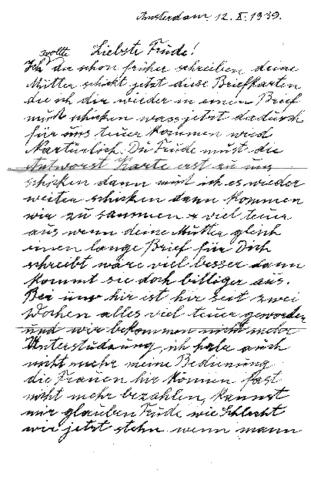 Amsterdam 12. X. 1939.
wollte Liebste Trude!
Ich dir schon früher schreiben deine
Mutter schickt jetzt diese Briefkarten
die ich dir wieder in einen Brief
muss schicken was jetzt dadurch
für uns teuer kommen wird
natürlich. Du Trude musst die
Antworst Karte erst zu uns
schicken dann muss ich es wieder
weiter schicken dann kommen
wir zu sammen viel teuer
aus wenn deine Mutter gleich
einen lange Brief für Dich
schreibt wäre viel besser dann
kommt sie doch billiger aus.
Bei uns hir ist hir seit zwei
Wochen alles viel teuer geworden
und wir bekommen nicht mehr
Unterstudzung, ich habe auch
nicht mehr meine Bedienung
die Frauen hir können fast
nicht mehr bezahlen, kannst
mir glauben Trude wie schlecht
wir jetzt stehn wenn mann